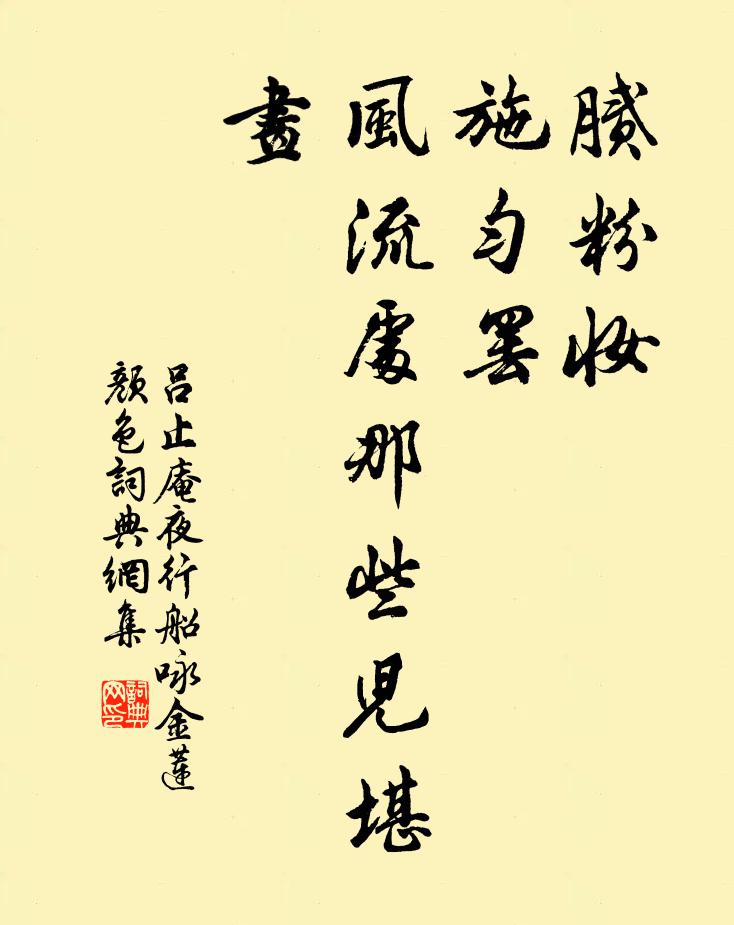 膩粉妝
施匀罷
風流處那些兒堪
畫
呂止庵夜行船咏金蓮
顏色詞典網集
詞典
网印